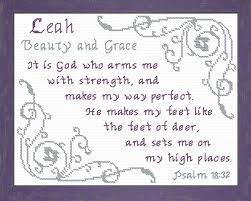 Leah
Beauty and Grace
It is God who arms me
with strength, and
makes my way perfect.
He makes my feet like
the feet of deer,
and sets me on
my high places.
Psalm 18:32